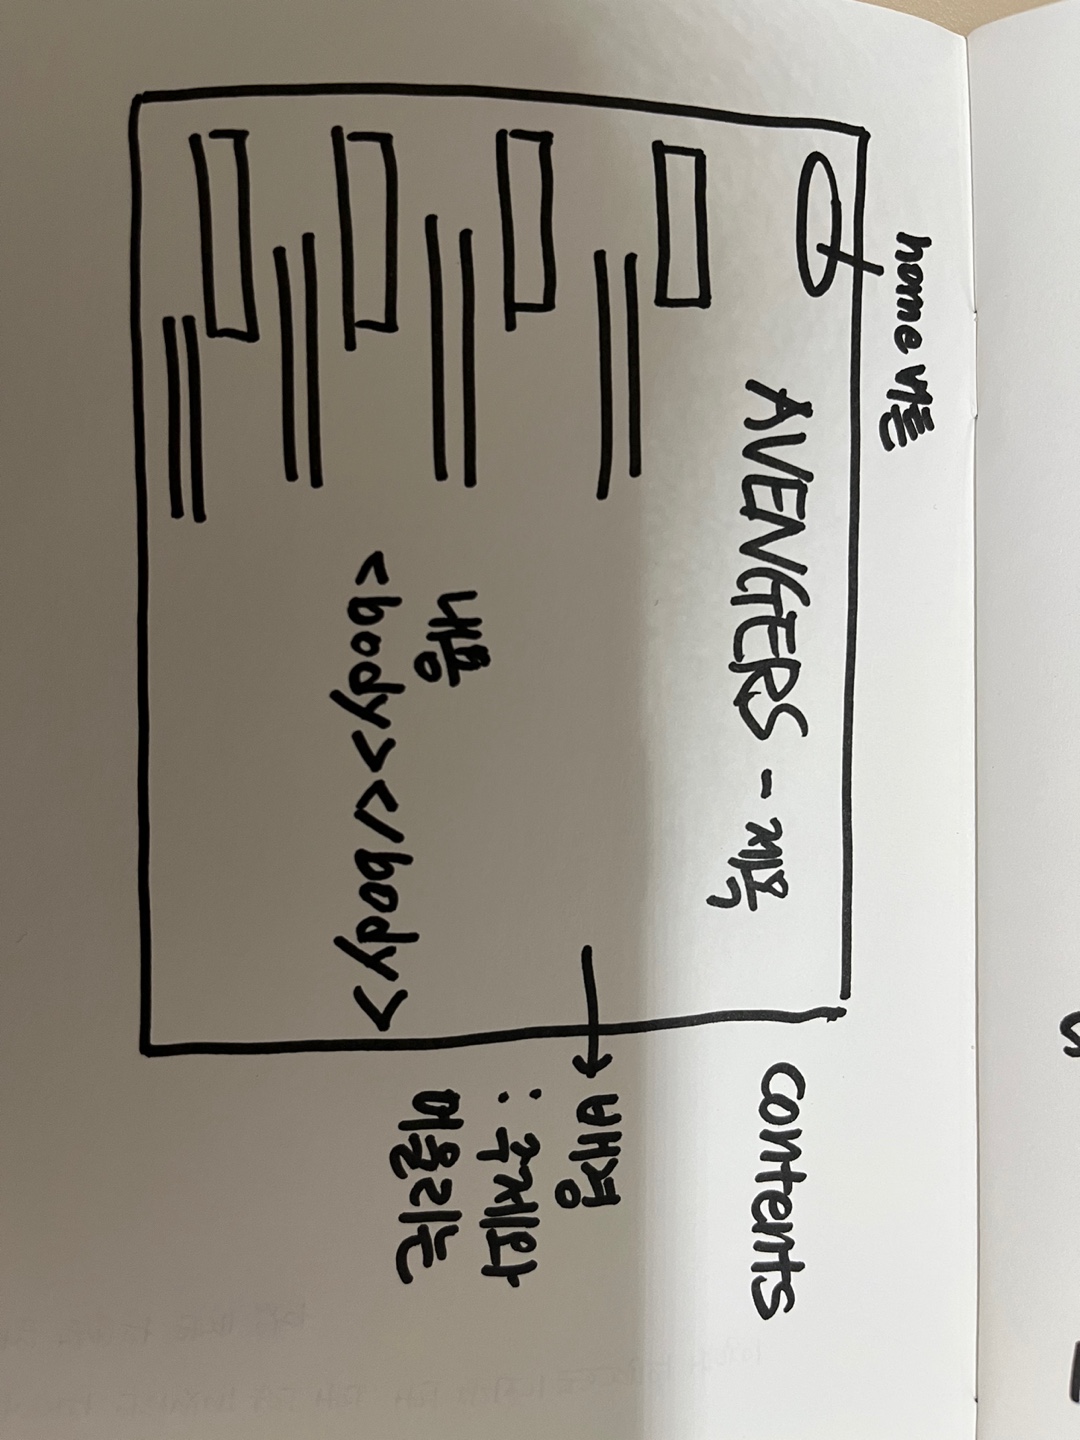 home 버튼
AVENGERS - 제목
contents
배경
: 주제와
어울리는
내용
<body></body>